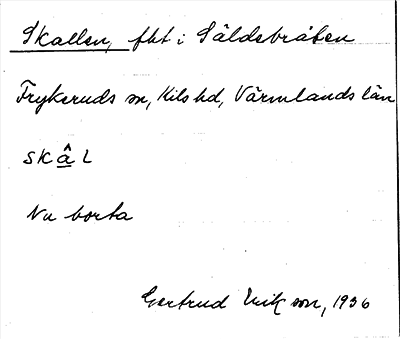 Skallen, fbt i Säldebråten
Frykeruds sn, Kils hd, Värmlands län
SKÂL
Nu borta
Gertrud Erikson, 1936